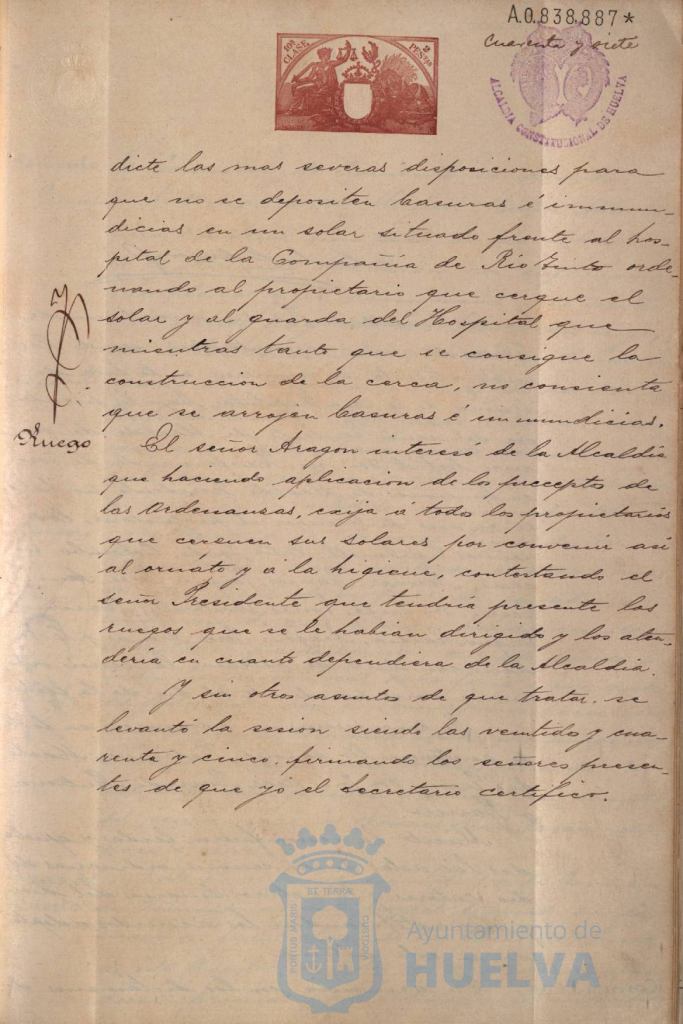 A.0.838,887*
cuarenta y siete
10ª CLASE
2 PESETAS
ALCALDIA CONSTITUCIONAL DE HUELVA
dicte las mas severas disposiciones para
que no se depositen basuras é inmun-
dicias en un solar situado frente al hos-
pital de la Compañia de Rio Tinto orde-
nando al propietario que cerque el
solar y al guarda del Hospital que
mientras tanto que se consigue la
construccion de la cerca, no consienta
que se arrojen basuras é inmundicias.
Ruego
El señor Aragon interesó de la Alcaldia
que haciendo aplicacion de los preceptos de
las Ordenansas, exija á todos los propietarios
que cerquen sus solares por convenir asi
al ornáto y á la higiene, contestando el
señor Presidente que tendria presente los
ruegos que se le habian dirigido y los aten-
deria en cuanto dependiera de la Alcaldia.
Y sin otros asuntos de que tratar, se
levantó la sesion siendo las veintidos y cua-
renta y cinco, firmando los señores presen-
tes de que yó el Secretario certifico.
PORTUS MARIS ET TERRAE CUSTODIA
Ayuntamiento de
HUELVA